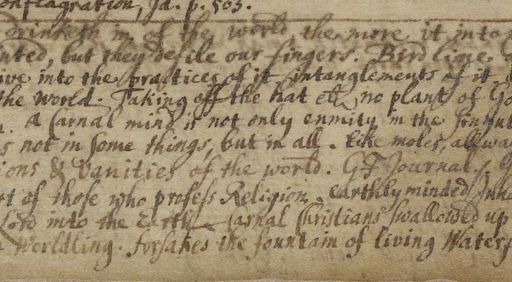 onflagration, Jd. p. 503.
Drinketh in of the world the more it into
nted, but they defile our fingers. Bird lime
ive into the practices of it, intanglements of it
the world. Taking off the hat etc no plant of Go
. A Carnal mind is not only enmity in the
s not in some things, but in all. like moles, allwa
ions & vanities of the world. GF Journal
rt of those who profess Religion, earthly minded
Lord into the Earth Carnal Christians swallowed up
Worldling. forsakes the fountain of living Waters